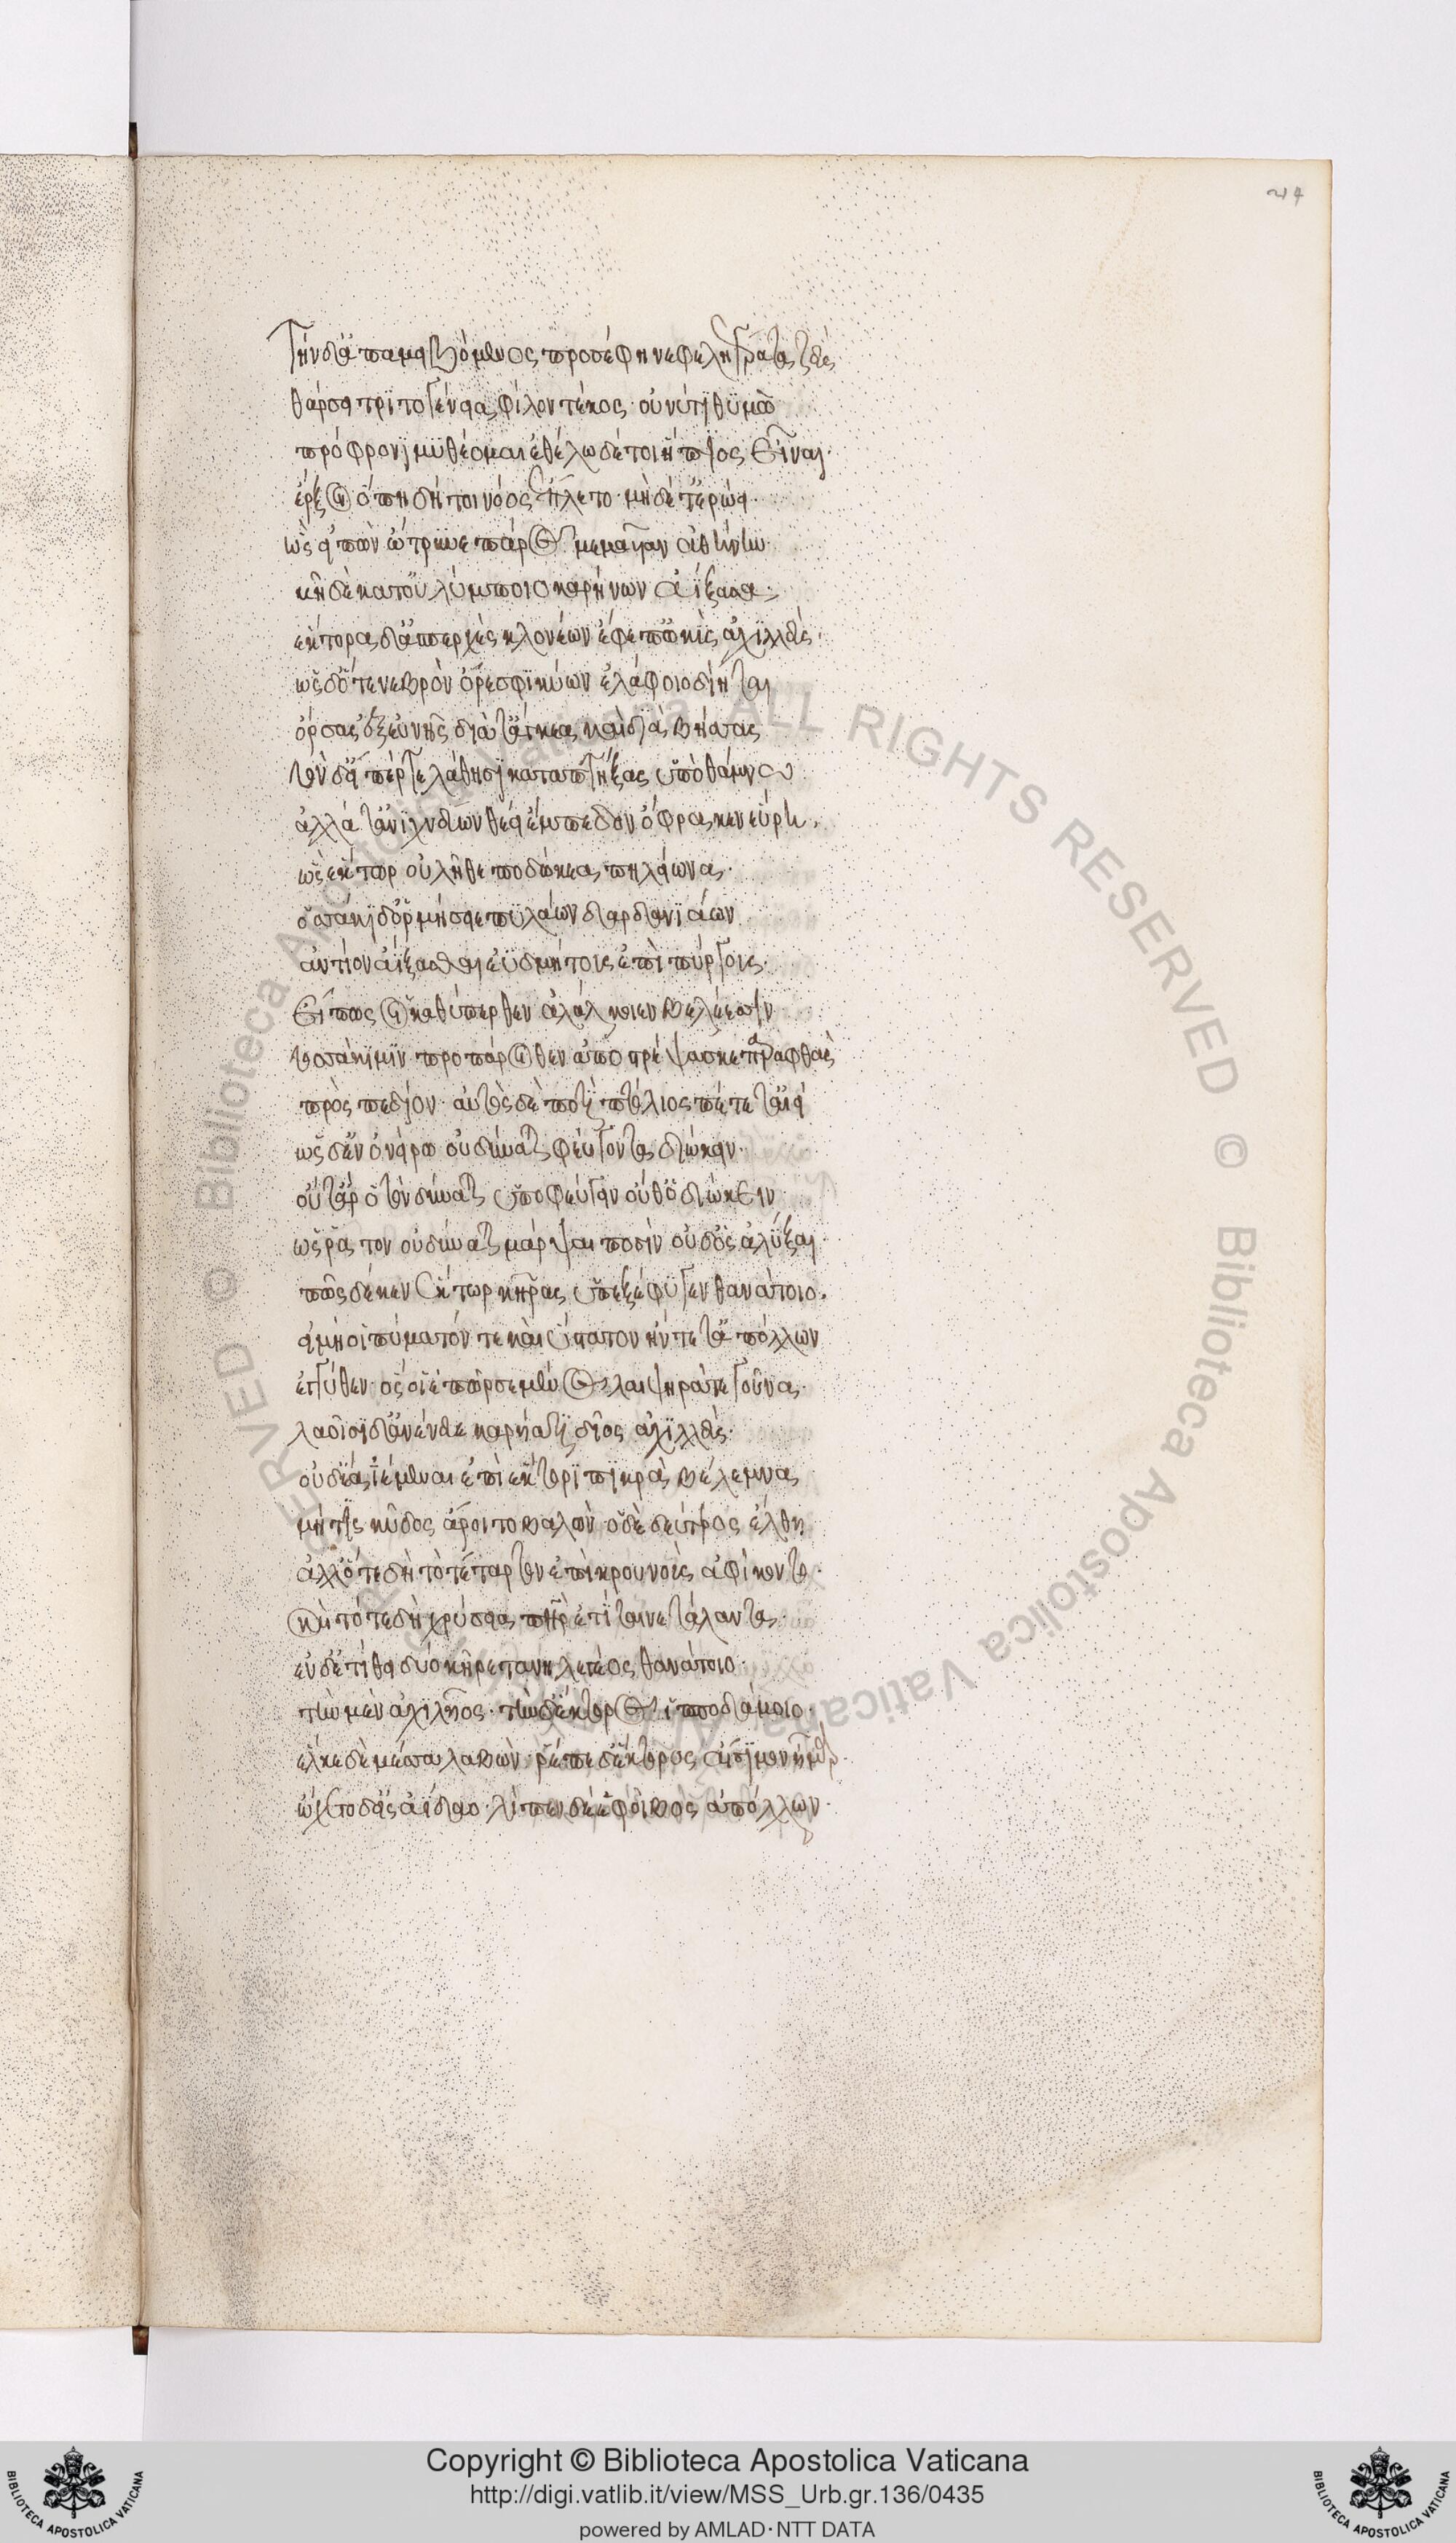 214
Τὴν δ' ἀπαμειβόμενος προσέφη νεφεληγερέτα ζεύς
θάρσει τριτογένεια φίλον τέκος· οὔ νύ τι θυμῶ
πρόφρονι μυθέομαι ἐθέλω δέ τοι ἤπιος εἶναι·
ἔρξον ὅπη δή τοι νόος ἔπλετο· μὴ δέ τ' ἐρώει·
ὣς εἰπὼν ὤτρυνε πάρος μεμαυῖαν ἀθήνην·
βῆ δὲ κατ' οὐλύμποιο καρήνων ἀΐξασα·
ἕκτορα δ' ἀσπερχὲς κλονέων ἔφεπ' ὠκὺς ἀχιλλεύς·
ὡς δ' ὅτε νεβρὸν ὄρεσφι κύων ἐλάφοιο δίηται
ὄρσας ἐξ εὐνῆς διά τ' ἄγκεα καὶ διὰ βήσσας
τὸν δ' εἴπερ τε λάθησι καταπτήξας ὑπὸ θάμνω
ἀλλά τ' ἀνιχνεύων θέει ἔμπεδον ὄφρα κεν εὕρη·
ὣς ἕκτωρ οὐ λῆθε ποδώκεα πηλείωνα·
ὁσσάκι δ' ὁρμήσειε πυλάων δαρδανιάων
ἀντίον ἀΐξασθαι ἐϋδμήτοις ἐπὶ πύργοις·
εἴ πως οἷ καθύπερθεν ἀλάλκοιεν βελέεσσιν
τοσσάκι μιν προπάροιθεν ἀποτρέψασκε παραφθὰς
πρὸς πεδίον· αὐτὸς δὲ ποτὶ πτόλιος πέτετ' αἰεί
ὡς δ' ἐν ὀνείρω οὐ δύναται φεύγοντα διώκειν·
οὔτ' ἂρ ὁ τὸν δύναται ὑποφεύγειν οὔθ' ὁ διώκειν·
ὣς ῥα τὸν οὐ δύνατο μάρψαι ποσὶν οὐδ' ὃς ἀλύξαι·
πῶς δέ κεν ἕκτωρ κῆρας ὑπεξέφυγεν θανάτοιο·
εἰ μή οἱ πύματόν τε καὶ ὕστατον ἤντετ' ἀπόλλων
ἐγγύθεν· ὅς οἱ ἐπῶρσε μένος λαιψηρά τε γοῦνα·
λαοῖσι δ' ἀνένευε καρήατι δῖος ἀχιλλεύς·
οὐδ' ἔα ἱέμεναι ἐπὶ ἕκτορι πικρὰ βέλεμνα
μή τις κῦδος ἄροιτο βαλών· ὁ δὲ δεύτερος ἔλθη
ἀλλ' ὅτε δὴ τὸ τέταρτον ἐπὶ κρουνοὺς ἀφίκοντο·
καὶ τότε δὴ χρύσεια πατὴρ ἐτίταινε τάλαντα·
ἐν δ' ἐτίθει δύο κῆρε τανηλεγέος θανάτοιο·
τὴν μὲν ἀχιλῆος· τὴν δ' ἕκτορος ἱπποδάμοιο·
εἷλκε δὲ μέσσα λαβών· ῥέπε δ' ἕκτορος αἴσιμον ἦμαρ·
ὤχετο δ' εἰς ἀΐδαο· λίπεν δέ ἑ φοῖβος ἀπόλλων·
© Biblioteca Apostolica Vaticana ALL RIGHTS RESERVED © Biblioteca Apostolica Vaticana ALL RIGHTS RESERVED
Copyright © Biblioteca Apostolica Vaticana
http://digi.vatlib.it/view/MSS_Urb.gr.136/0435
powered by AMLAD·NTT DATA
BIBLIOTECA APOSTOLICA VATICANA
BIBLIOTECA APOSTOLICA VATICANA